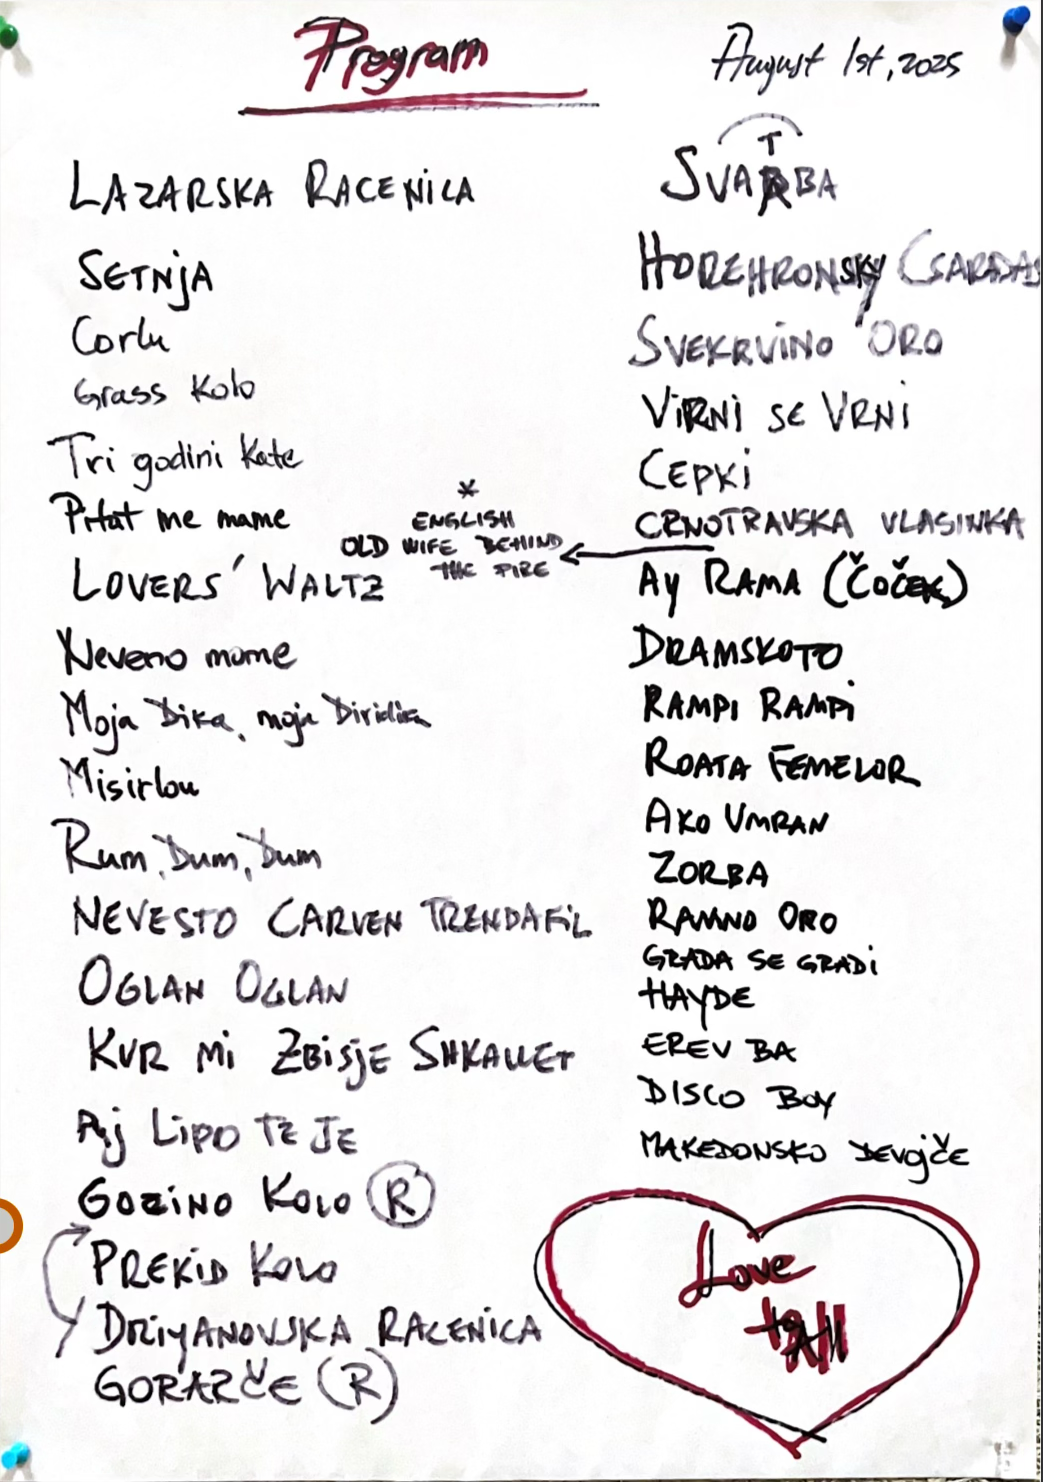 Program
August 1st, 2025
LAZARSKA RACENICA
SETNJA
Corlu
Grass Kolo
Tri godini Kate
Pitat me mame
LOVERS' WALTZ
Neveno mome
Moja Dika, moja Diridika
Misirlou
Rum, Dum, Dum
NEVESTO CARVEN TRENDAFIL
OGLAN OGLAN
KUR MI ZBISJE SHKALLET
AJ LIPO TE JE
GOCINO KOLO (R)
PREKID KOLO
DRIYANOVSKA RACENICA
GORARČE (R)
*
ENGLISH
OLD WIFE BEHIND
THE FIRE
SVATBA
HOREHRONSKY CSARDAS
SVEKRVINO ORO
VIRNI SE VRNI
CEPKI
CRNOTRAVSKA VLASINKA
AY RAMA (ČOČEK)
DRAMSKOTO
RAMPI RAMPI
ROATA FEMELOR
AKO UMRAM
ZORBA
RAMNO ORO
GRADA SE GRADI
HAYDE
EREV BA
DISCO BOY
MAKEDONSKO DEVOJČE
Love
to All